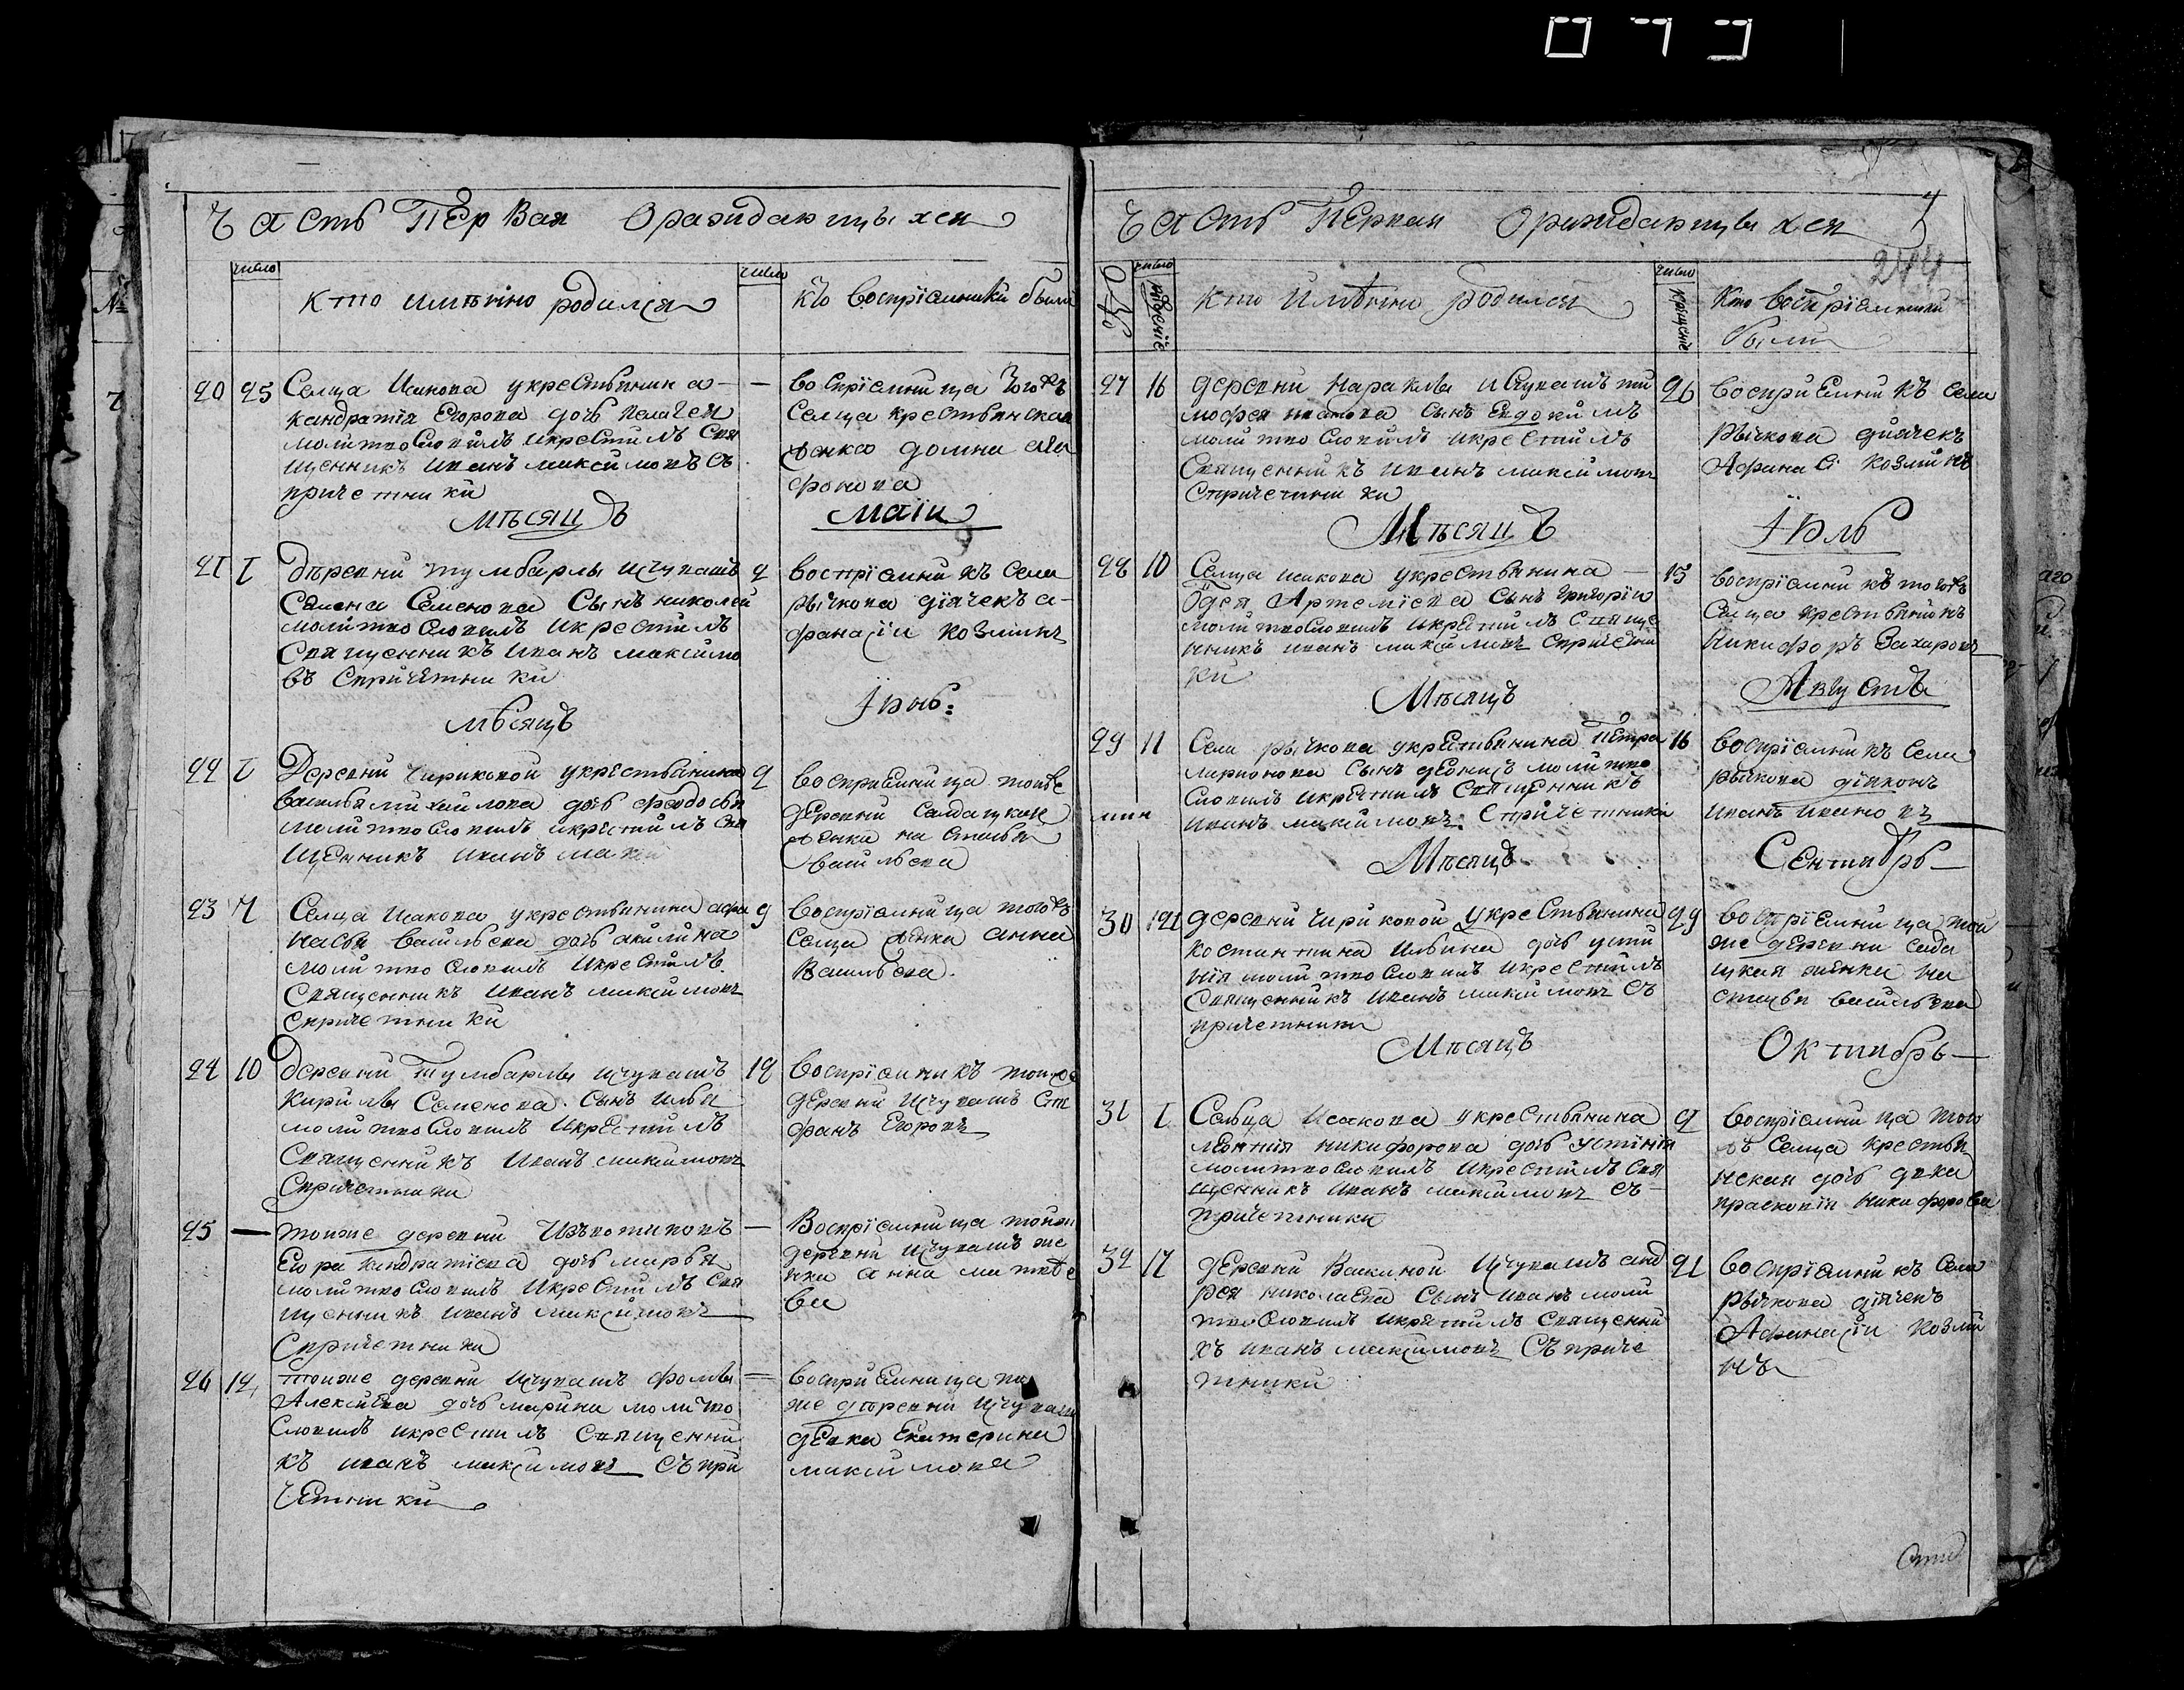 Часть Первая Ораждающыхся
число
кто имянно родился
число
кто воспрїемники были
20 25 Селца Исакова укрестьянина
Кандратїя Егорова дочь пелагея
молитвословилъ икрестилъ Свя
щенникъ иванъ максимовъ съ
причетники
воспрїемница тогожъ
Селца крестьянская
жонка домна
фонова
мѣсяцъ
маїи
21 1 дѣревни тумбарлы изчувашъ
Семена Семенова Сынъ николай
молитвословилъ икрестилъ
Священникъ иванъ максимо
въ Спричетники
2 воспрїемникъ села
рычкова дїячекъ а-
фанасїи козминъ
мѣсяцъ
Їюнь:
22 1 Деревни Чириковой укрестьянина
василья михайлова дочь феодосья
молитвословилъ икрестилъ Свя
щенникъ иванъ макси
2 воспрїемница тойже
деревни Салдацкая
жонка настасья
васильева
23 7 Селца Исакова укрестьянина афа
насья васильева дочь акилина
молитвословилъ икрестилъ
Священникъ иванъ максимовъ
спричетники
9 воспрїемница тогожъ
Селца жонка анна
Васильева.
24 10 деревни Тумбарлы изчувашъ
кирилы Семенова. Сынъ илья
молитвословилъ икрестилъ
Священникъ Иванъ максимовъ
Спричетники
12 воспрїемникъ тойже
деревни изчувашъ Сте
фанъ Егоровъ
25 — тойже деревни
Егора кандратїева дочь марья
молитвословилъ икрестилъ Свя
щенникъ иванъ максимовъ
Спричетники
— Воспрїемница тойже
деревни изчувашъ же
нка анна матвѣе
ва
26 12 тойже деревни изчувашъ фомы
Алексѣева дочь марина молитво
словилъ икрестилъ священни
къ иванъ максимовъ съ при
четники
воспрїемница той
же дѣревни изчуваш
девка Екатерина
максимова
Часть Первая Ораждающыхся
число
рождение
кто имянно родился
число
крещение
Кто воспрїемники
были
27 16 деревни
мофея иванова сынъ Евдокимъ
молитвословилъ икрестилъ
Священникъ иванъ максимовъ
Спричетники
26 воспрїемникъ села
Рычкова дїячекъ
Афанасїй козминъ
Мѣсяцъ
Їюль
28 10 Селца исакова укрестьянина —
Артемїева Сынъ григорїи
молитвословилъ икрестилъ Свяще
нникъ иванъ максимовъ спричетни
ки
15 воспрїемникъ тогожъ
Селца крестьянинъ
Никифоръ Захаровъ
Мѣсяцъ
Августъ
29 11 Села рычкова укрестьянина Петра
ларионова Сынъ денисъ молитво
словилъ икрестилъ Священникъ
иванъ максимовъ Спричетники
16 воспрїемникъ села
рычкова дїяконъ
иванъ ивановъ
Мѣсяцъ
Сентябрь
30 деревни Чириковой укрестьянина
Костантина Ильина дочь усти
нїя молитвословилъ икрестилъ
Священникъ иванъ максимовъ съ
причетники
29 воспрїемница той
же деревни Салда
цкая жонка на
стасья васильева
Мѣсяцъ
Октябрь
31 1 Сельца Исакова укрестьянина
никифорова дочь устинїя
молитвословилъ икрестилъ Свя
щенникъ иванъ максимовъ съ
причетники
2 воспрїемница того
жъ Селца крестья
нская дочь девка
прасковїя никифорова
32 17 деревни Васкиной изчувашъ анд
рея николаева Сынъ иванъ моли
твословилъ икрестилъ Священни
къ иванъ максимовъ Съ приче
тники
21 воспрїемникъ Села
рычкова дїячекъ
Афанасїи козми
нъ